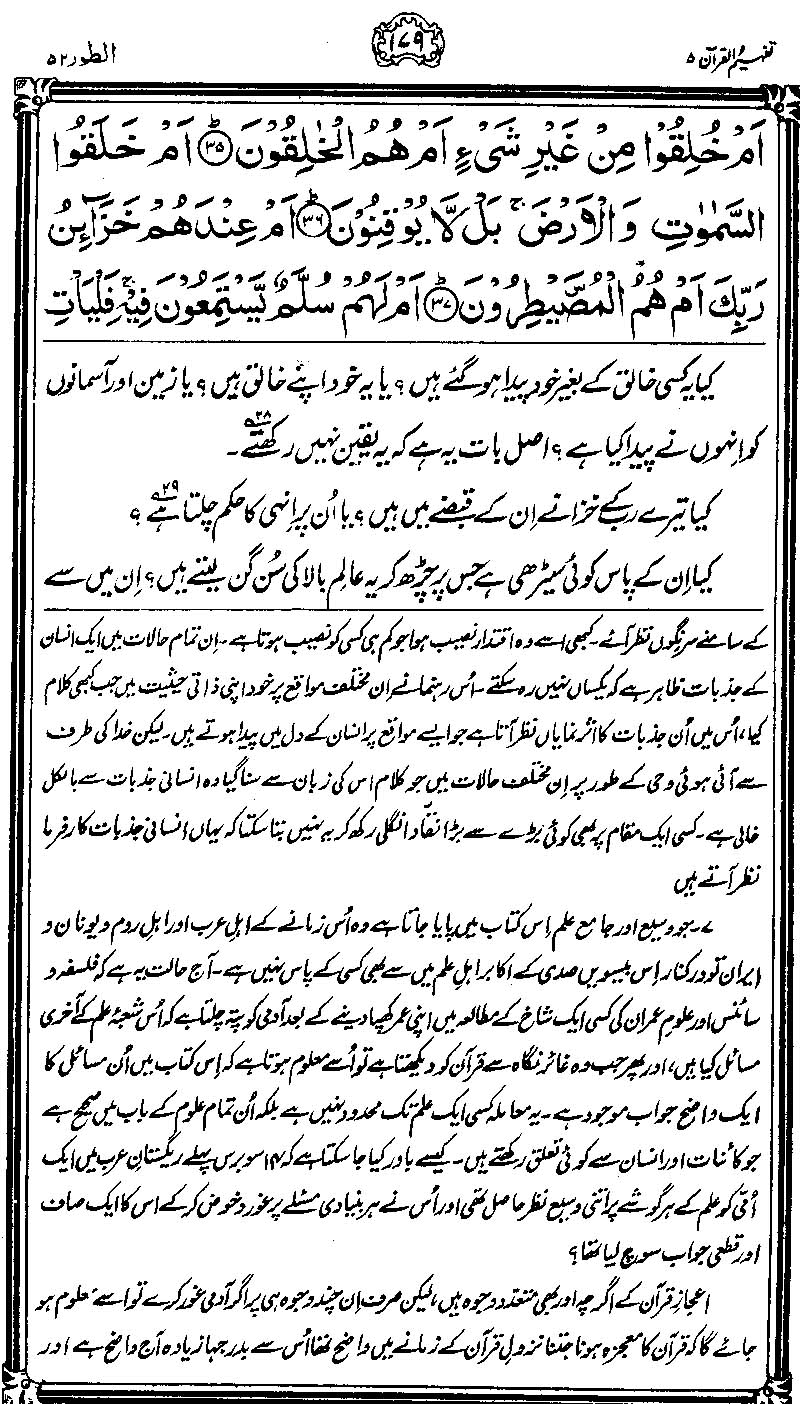 تفہیم القرآن ۵ ۱۷۹ الطور ۵۲
اَمۡ خُلِقُوۡا مِنۡ غَیۡرِ شَیۡءٍ اَمۡ هُمُ الۡخٰلِقُوۡنَ ﴿۳۵﴾ اَمۡ خَلَقُوا
السَّمٰوٰتِ وَالۡاَرۡضَ ۚ بَلۡ لَّا یُوۡقِنُوۡنَ ﴿۳۶﴾ اَمۡ عِنۡدَهُمۡ خَزَآئِنُ
رَبِّكَ اَمۡ هُمُ الۡمُصَۜیۡطِرُوۡنَ ﴿۳۷﴾ اَمۡ لَهُمۡ سُلَّمٌ یَّسۡتَمِعُوۡنَ فِیۡهِ ۚ فَلۡیَاۡتِ
کیا یہ کسی خالق کے بغیر خود پیدا ہو گئے ہیں؟ یا یہ خود اپنے خالق ہیں؟ یا زمین اور آسمانوں
کو اِنہوں نے پیدا کیا ہے؟ اصل بات یہ ہے کہ یہ یقین نہیں رکھتے۲۸۔
کیا تیرے رب کے خزانے اِن کے قبضے میں ہیں؟ یا اُن پر اِنہی کا حکم چلتا ہے۲۹؟
کیا اِن کے پاس کوئی سیڑھی ہے جس پر چڑھ کر یہ عالمِ بالا کی سُن گن لیتے ہیں؟ اِن میں سے
کے سامنے سرنگوں نظر آئے۔ کبھی اسے وہ اقتدار نصیب ہوا جو کم ہی کسی کو نصیب ہوتا ہے۔ اِن تمام حالات میں ایک انسان
کے جذبات ظاہر ہے کہ یکساں نہیں رہ سکتے۔ اُس رہنما نے اِن مختلف مواقع پر خود اپنی ذاتی حیثیت میں جب کبھی کلام
کیا، اُس میں اُن جذبات کا اثر نمایاں نظر آتا ہے جو ایسے مواقع پر انسان کے دل میں پیدا ہوتے ہیں۔ لیکن خدا کی طرف
سے آئی ہوئی وحی کے طور پر اِن مختلف حالات میں جو کلام اس کی زبان سے سنا گیا وہ انسانی جذبات سے بالکل
خالی ہے۔ کسی ایک مقام پر بھی کوئی بڑے سے بڑا نقّاد انگلی رکھ کر یہ نہیں بتا سکتا کہ یہاں انسانی جذبات کارفرما
نظر آتے ہیں
۷۔ جو وسیع اور جامع علم اِس کتاب میں پایا جاتا ہے وہ اُس زمانے کے اہلِ عرب اور اہلِ روم و یونان و
ایران تو درکنار اِس بیسویں صدی کے اکابر اہلِ علم میں سے بھی کسی کے پاس نہیں ہے۔ آج حالت یہ ہے کہ فلسفہ و
سائنس اور علومِ عمران کی کسی ایک شاخ کے مطالعہ میں اپنی عمر کھپا دینے کے بعد آدمی کو پتہ چلتا ہے کہ اُس شعبۂ علم کے آخری
مسائل کیا ہیں، اور پھر جب وہ غائر نگاہ سے قرآن کو دیکھتا ہے تو اُسے معلوم ہوتا ہے کہ اِس کتاب میں اُن مسائل کا
ایک واضح جواب موجود ہے۔ یہ معاملہ کسی ایک علم تک محدود نہیں ہے بلکہ اُن تمام علوم کے باب میں صحیح ہے
جو کائنات اور انسان سے کوئی تعلق رکھتے ہیں۔ کیسے باور کیا جا سکتا ہے کہ ۱۴ سو برس پہلے ریگستانِ عرب میں ایک
اُمّی کو علم کے ہر گوشے پر اتنی وسیع نظر حاصل تھی اور اُس نے ہر بنیادی مسئلے پر غور و خوض کر کے اس کا ایک صاف
اور قطعی جواب سوچ لیا تھا؟
اعجازِ قرآن کے اگرچہ اور بھی متعدد وجوہ ہیں، لیکن صرف اِن چند وجوہ ہی پر اگر آدمی غور کرے تو اسے معلوم ہو
جائے گا کہ قرآن کا معجزہ ہونا جتنا نزولِ قرآن کے زمانے میں واضح تھا اُس سے بدرجہا زیادہ آج واضح ہے اور